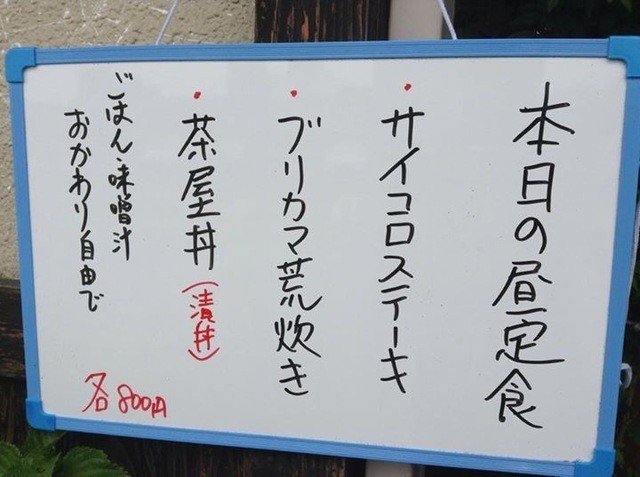 本日の昼定食
・サイコロステーキ
・ブリカマ荒炊き
・茶屋丼(漬丼)
ごはん・味噌汁
おかわり自由で
各800円